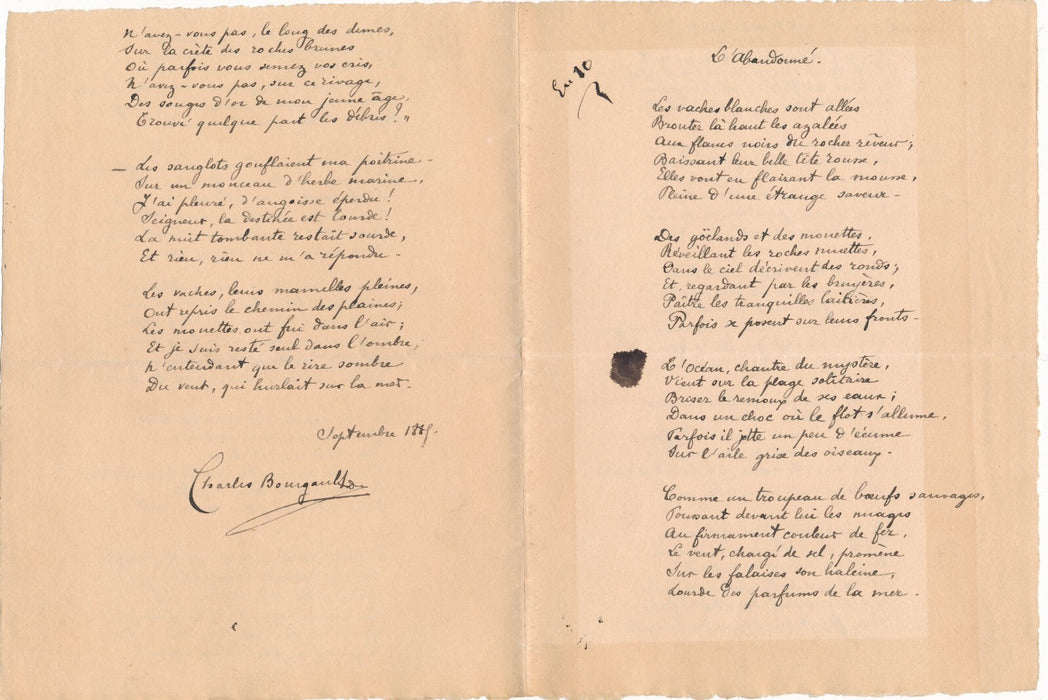 N'avez-vous pas, le long des dunes,
Sur la crête des roches brunes
Où parfois vous semez vos cris,
N'avez-vous pas, sur ce rivage,
Des songes d'or de mon jeune âge,
Trouvé quelque part les débris? "
— Les sanglots gonflaient ma poitrine -
Sur un monceau d'herbe marine,
J'ai pleuré, d'angoisse éperdu!
Seigneur, la destinée est lourde!
La nuit tombante restait sourde,
Et rien, rien ne m'a répondu -
Les vaches, leurs mamelles pleines,
Ont repris le chemin des plaines;
Les mouettes ont fui dans l'air;
Et je suis resté seul dans l'ombre,
N'entendant que le rire sombre
Du vent, qui hurlait sur la mer.
Septembre 1885.
Charles Bourgault
L'Abandonné.
En 10
Les vaches blanches sont allées
Brouter là haut les azalées
Aux flancs noirs du rocher rêveur;
Baissant leur belle tête rousse,
Elles vont en flairant la mousse,
Pleine d'une étrange saveur -
Des göelands et des mouettes,
Réveillant les roches muettes,
Dans le ciel décrivent des ronds;
Et, regardant par les bruyères,
Paître les tranquilles laitières,
Parfois se posent sur leurs fronts -
L'Océan, chantre du mystère,
Vient sur la plage solitaire
Briser le remous de ses eaux;
Dans un choc où le flot s'allume,
Parfois il jette un peu d'écume
Sur l'aile grise des oiseaux -
Comme un troupeau de bœufs sauvages,
Poussant devant lui les nuages
Au firmament couleur de fer,
Le vent, chargé de sel, promène
Sur les falaises son haleine,
Lourde des parfums de la mer.